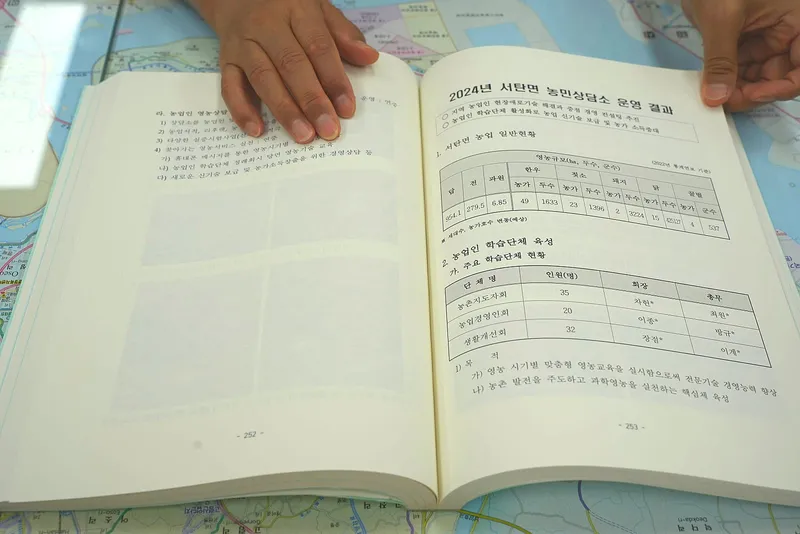 라. 농업인 영농상담
1) 상담소를
2) 농업지식,
3) 다양한 실증시험사업
4) 찾아가는 영농서비스 실천
가) 휴대폰 메시지를 통한 영농시기별 교육
나) 농업인 학습단체 경력회시 당면 영농기술 교육
다) 새로운 신기술 보급 및 농가소득창출을 위한 경영상담 등
- 252 -
2024년 서탄면 농민상담소 운영 결과
○ 지역 농업인 현장애로기술 해결과 종합 경영 컨설팅 추진
○ 농업인 학습단체 활성화로 농업 신기술 보급 및 농가 소득증대
1. 서탄면 농업 일반현황
(2022년 통계연보 기준)
영농규모(ha, 두수, 군수)
답 전 과원 한우 젖소 돼지 닭 꿀벌
농가 두수 농가 두수 농가 두수 농가 두수 농가 군수
954.1 279.5 6.85 49 1633 23 1396 2 3224 15 4 537
2. 농업인 학습단체 육성
가. 주요 학습단체 현황
단 체 명 인원(명) 회장 총무
농촌지도자회 35 차원* 최원*
농업경영인회 20 이종* 방규*
생활개선회 32 장점* 이계*
1) 목 적
가) 영농 시기별 맞춤형 영농교육을 실시함으로써 전문기술 경영능력 향상
나) 농촌 발전을 주도하고 과학영농을 실천하는 핵심체 육성
- 253 -